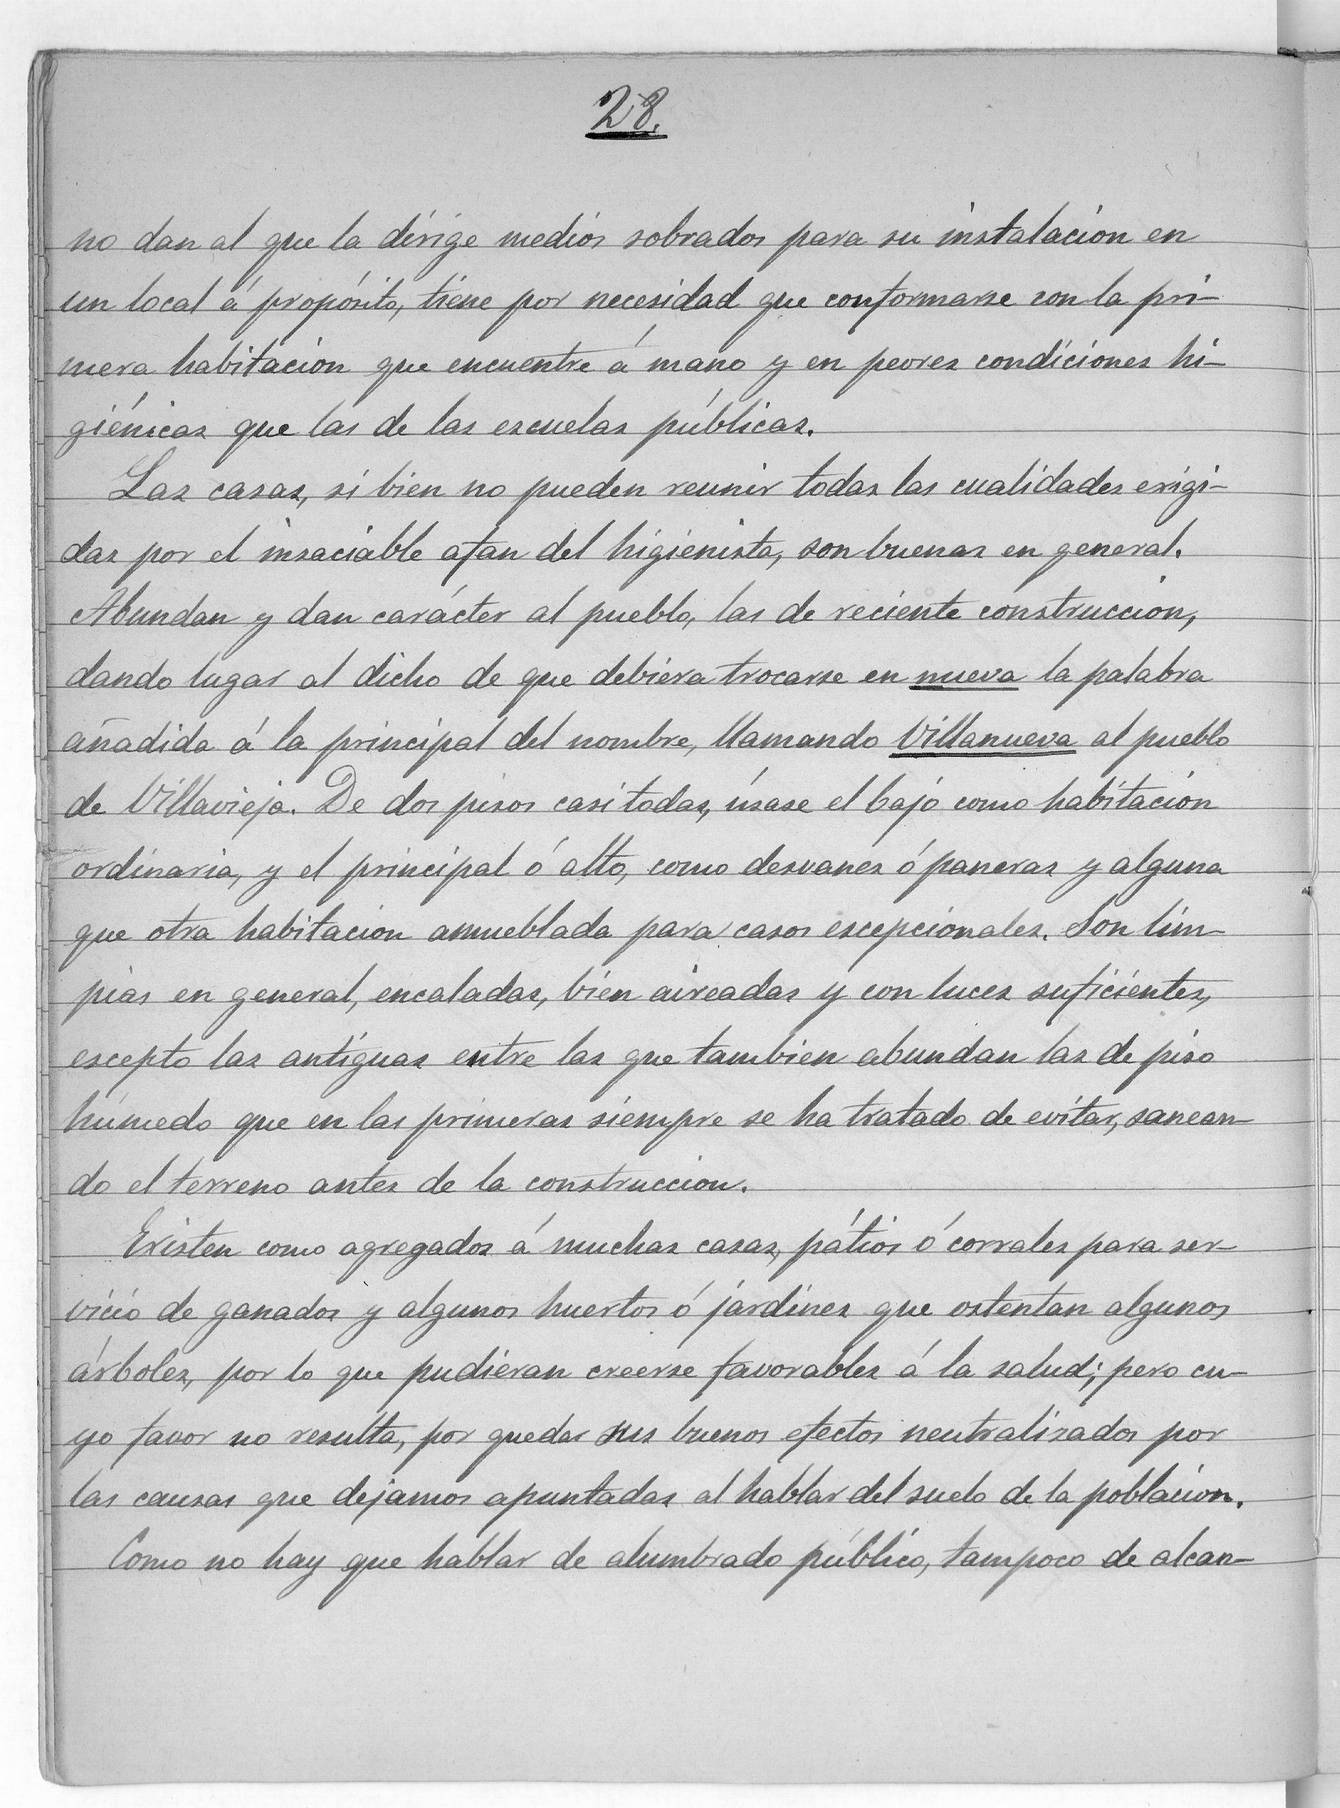 28.
no dan al que la dirige medios sobrados para su instalacion en
un local á propósito, tiene por necesidad que conformarse con la pri-
mera habitacion que encuentre á mano y en peores condiciones hi-
giénicas que las de las escuelas públicas.
Las casas, si bien no pueden reunir todas las cualidades exigi-
das por el insaciable afan del higienista, son buenas en general.
Abundan y dan carácter al pueblo, las de reciente construccion,
dando lugar al dicho de que debiera trocarse en nueva la palabra
añadida á la principal del nombre, llamando Villanueva al pueblo
de Villavieja. De dos pisos casi todas, úsase el bajo como habitacion
ordinaria, y el principal ó alto, como desvanes ó paneras y alguna
que otra habitacion amueblada para casos escepcionales. Son lim-
pias en general, encaladas, bien aireadas y con luces suficientes,
escepto las antiguas entre las que tambien abundan las de piso
húmedo que en las primeras siempre se ha tratado de evitar, sanean-
do el terreno antes de la construccion.
Existen como agregados á muchas casas, pátios ó corrales para ser-
vicio de ganados y algunos huertos ó jardines que ostentan algunos
árboles, por lo que pudieran creerse favorables á la salud; pero cu-
yo favor no resulta, por quedar sus buenos efectos neutralizados por
las causas que dejamos apuntadas al hablar del suelo de la poblacion.
Como no hay que hablar de alumbrado público, tampoco de alcan-